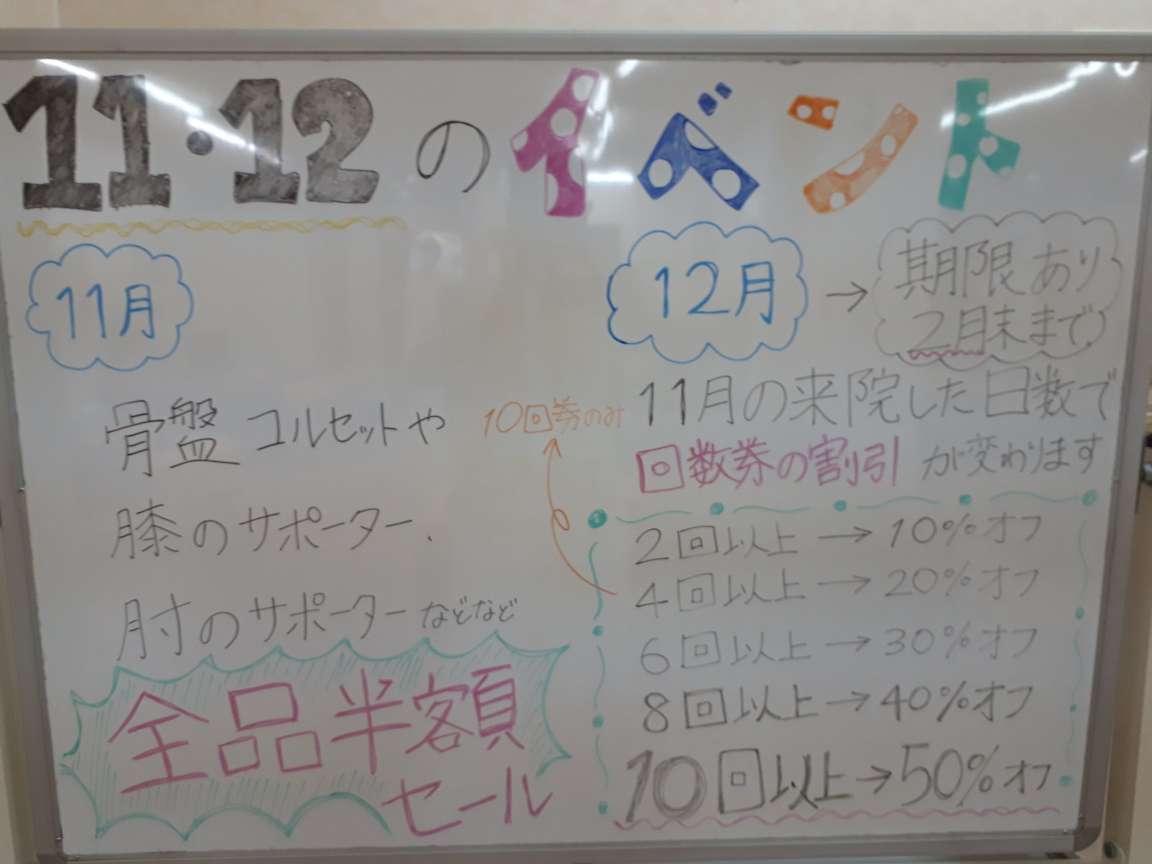 11・12のイベント
11月
骨盤コルセットや
膝のサポーター、
肘のサポーターなどなど
全品半額
セール
12月→期限あり
2月末まで
11月の来院した日数で
回数券の割引が変わります
10回券のみ
2回以上→10%オフ
4回以上→20%オフ
6回以上→30%オフ
8回以上→40%オフ
10回以上→50%オフ